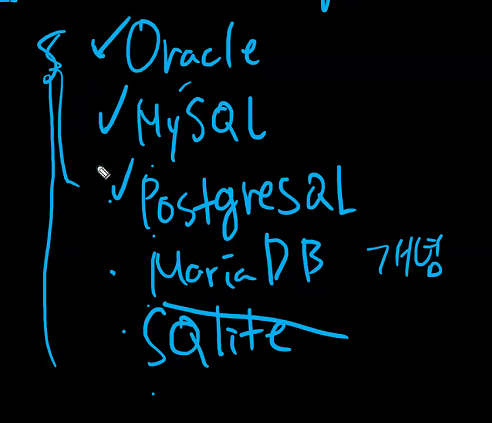 ✓Oracle
✓MySQL
✓PostgresQL
· MariaDB 개념
· SQlite